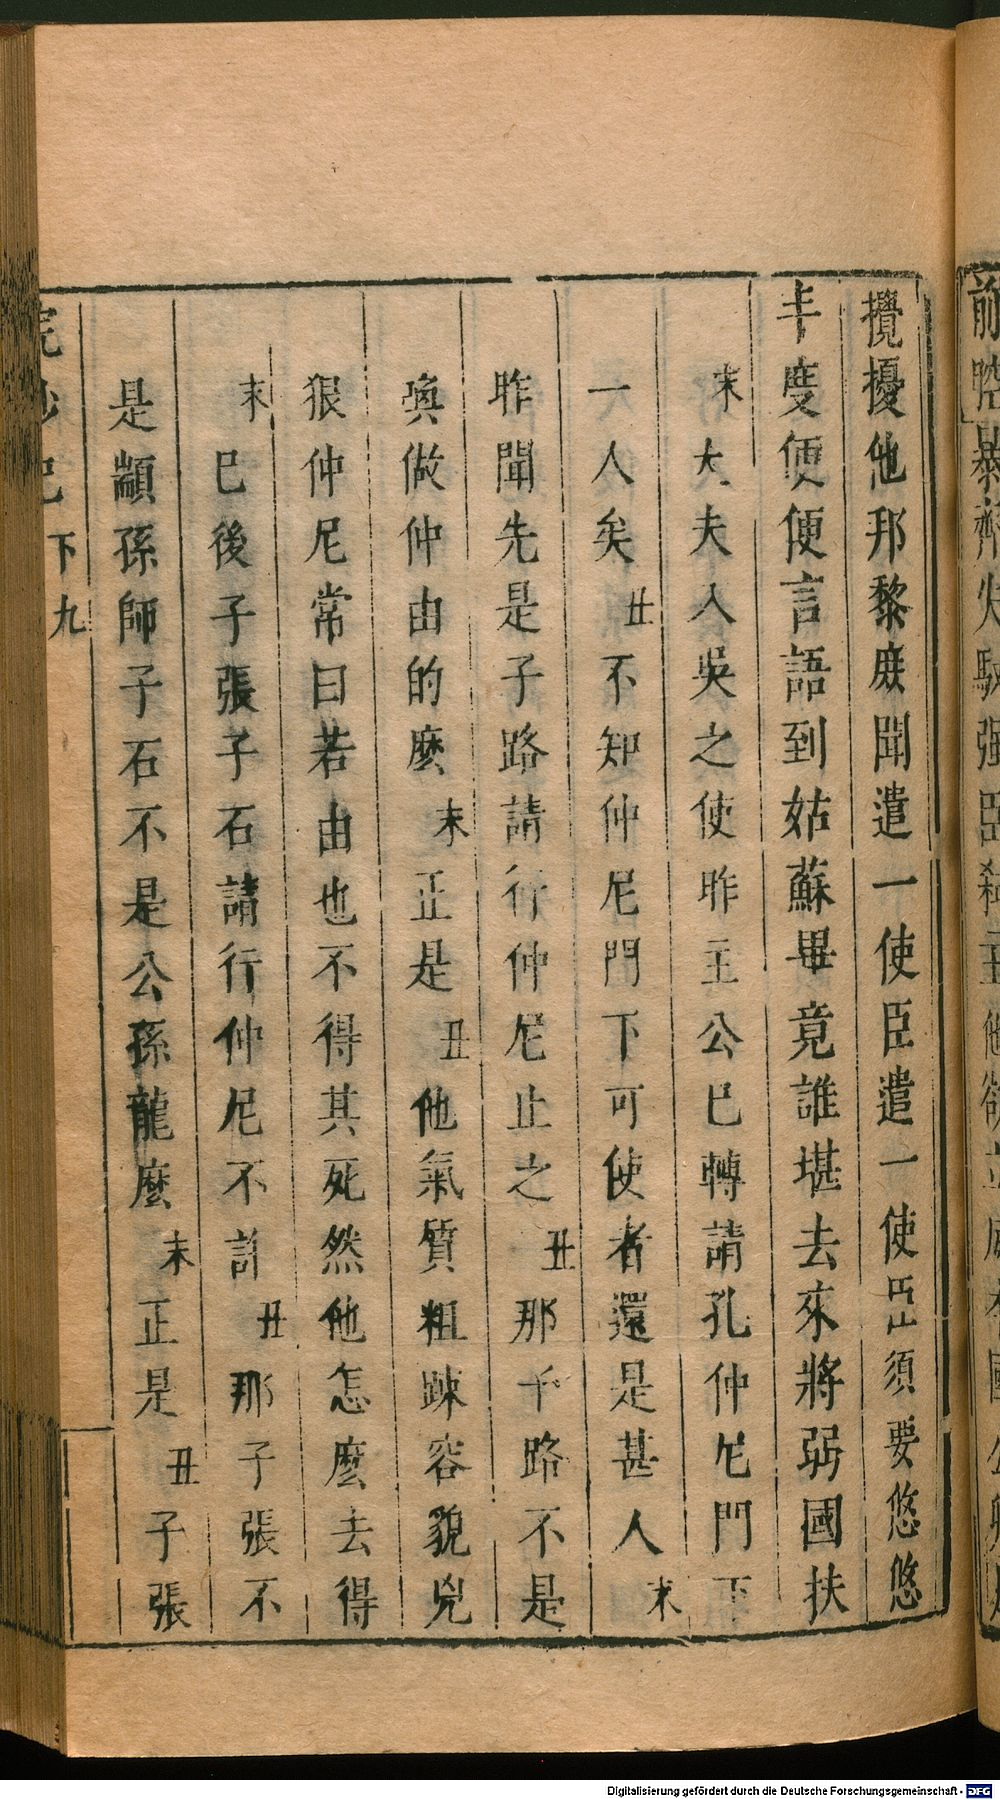 攪擾他那黎庶聞遣一使臣遣一使臣須要悠悠
丰度便便言語到姑蘇畢竟誰堪去來將弱國扶
末大夫人吳之使昨主公已轉請孔仲尼門下
一人矣丑不知仲尼門下可使者還是甚人末
昨聞先是子路請行仲尼止之丑那子路不是
喚做仲由的麽末正是丑他氣質粗踈容貌兇
狠仲尼常曰若由也不得其死然他怎麽去得
末已後子張子石請行仲尼不許丑那子張不
是顓孫師子石不是公孫龍麽末正是丑子張
浣紗記
下九
Digitalisierung gefördert durch die Deutsche Forschungsgemeinschaft - DFG